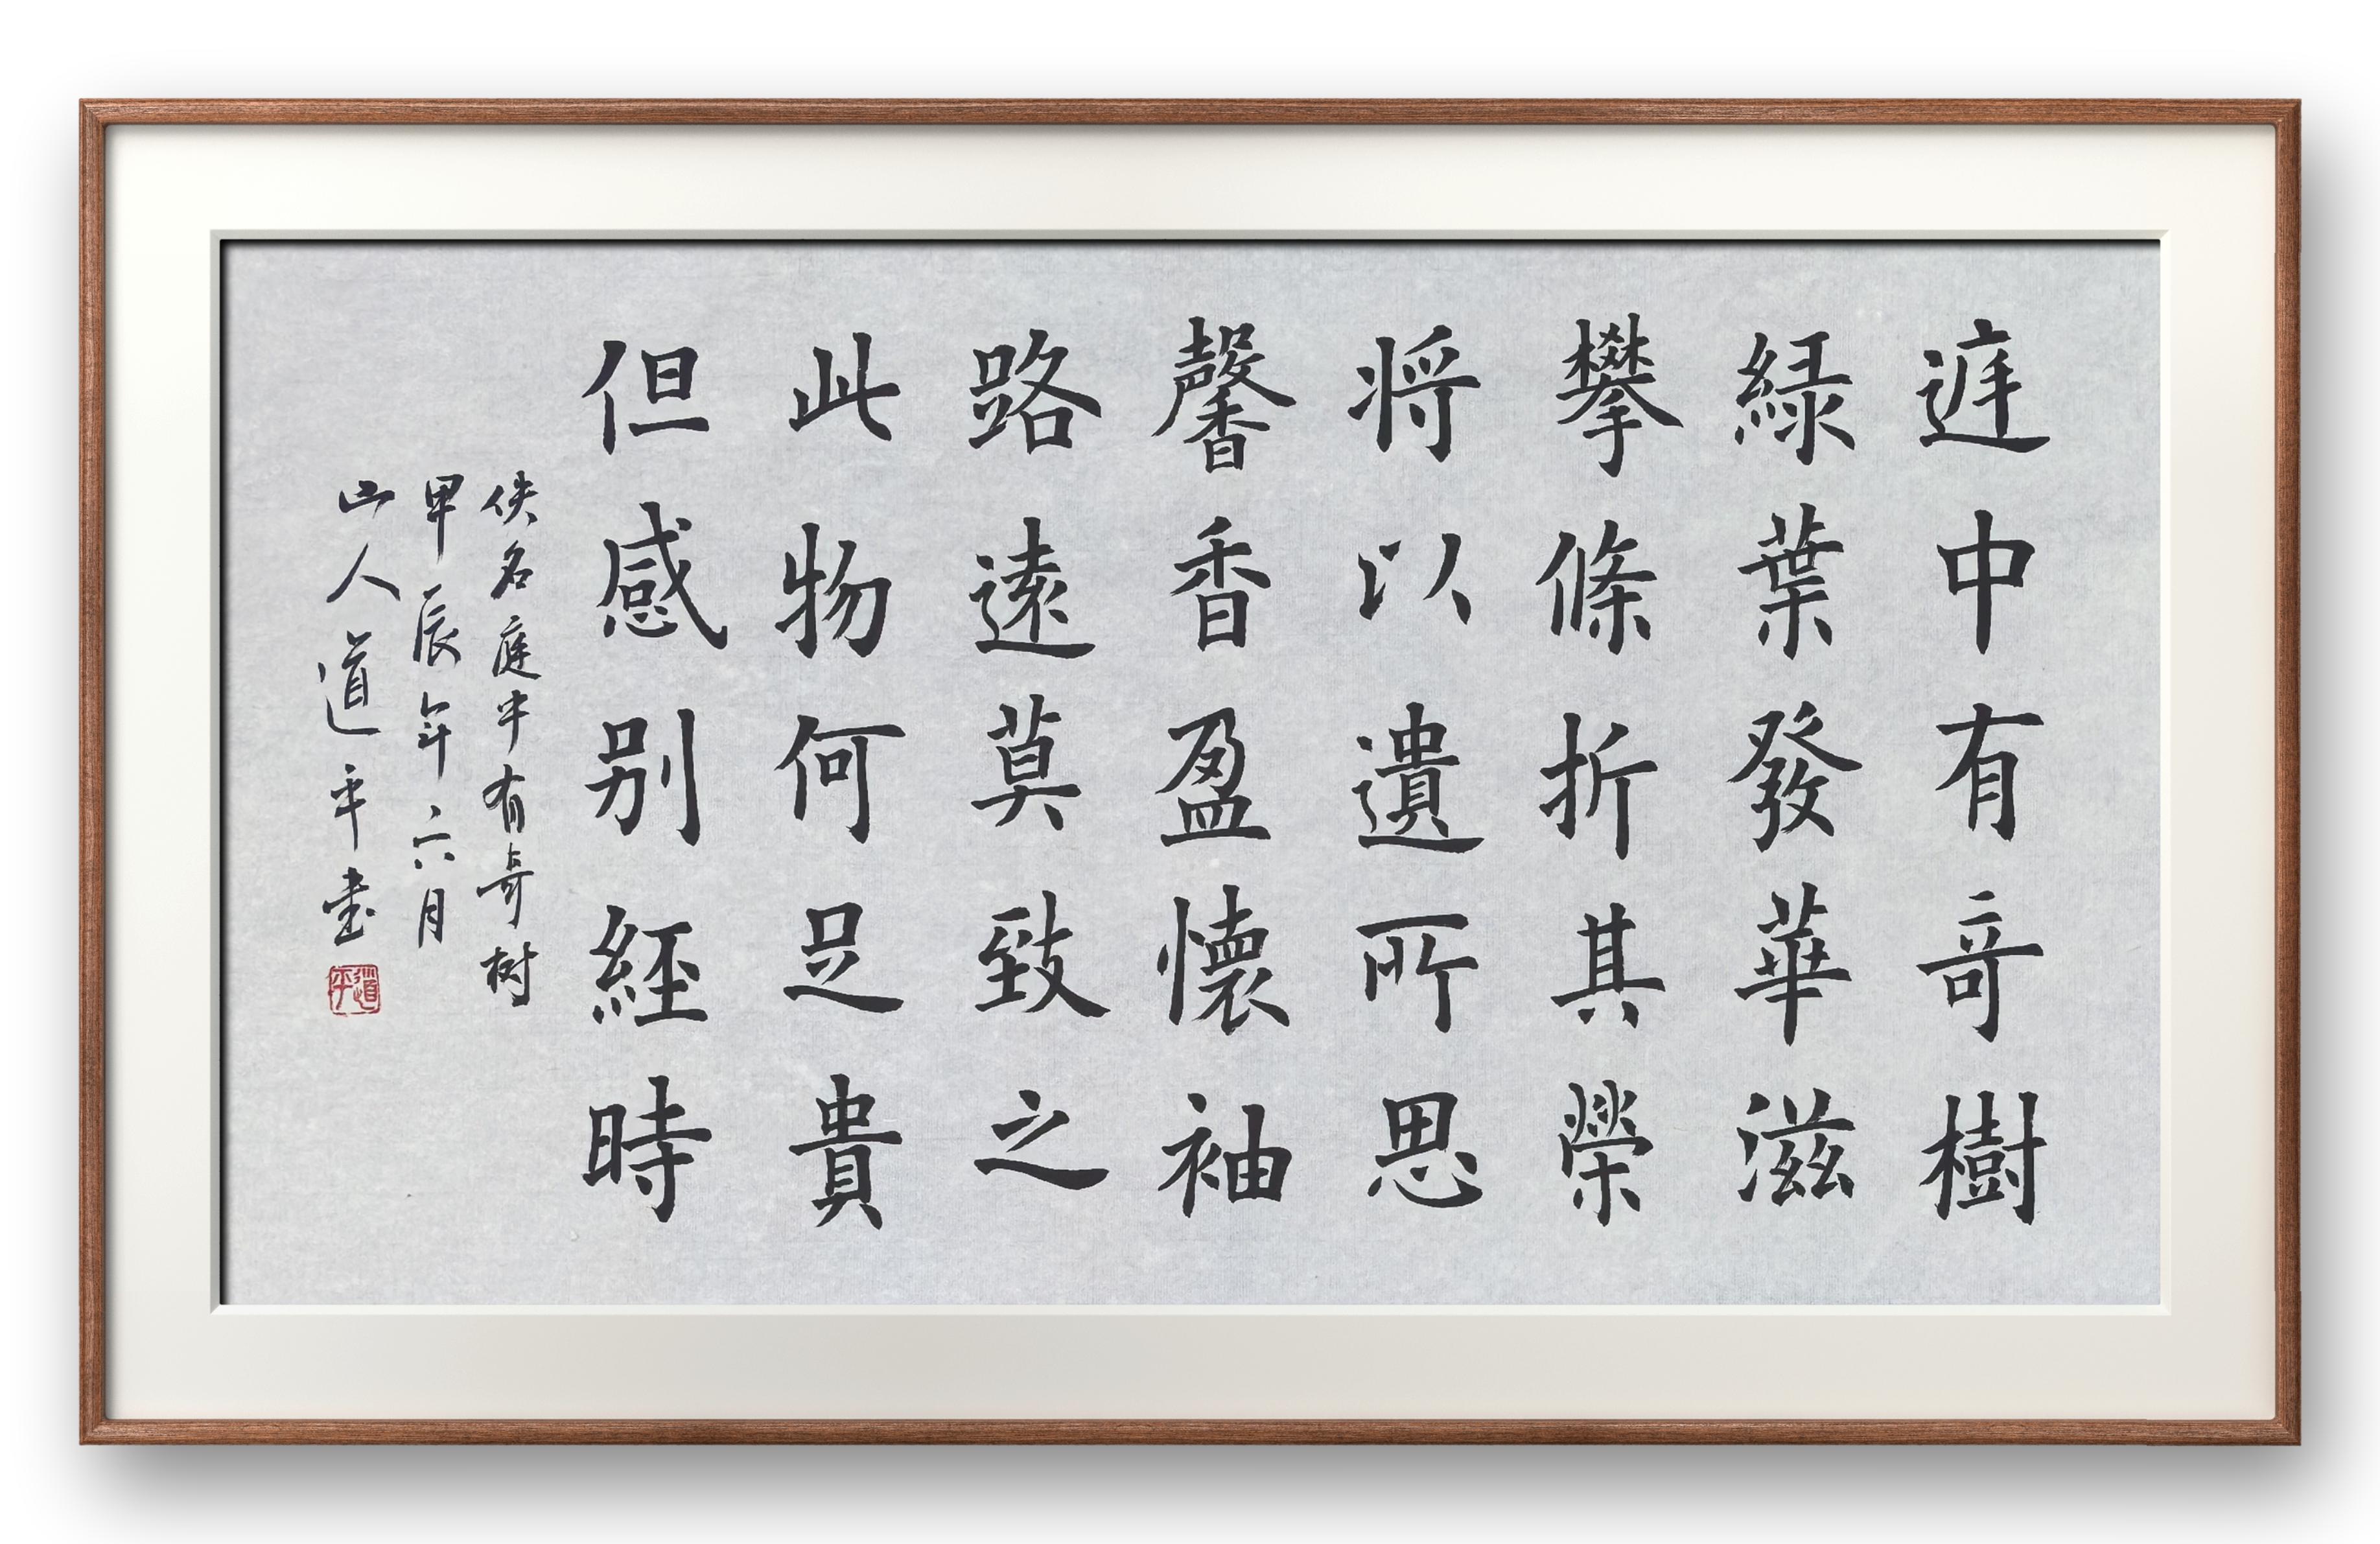 庭中有奇樹
緑葉發華滋
攀條折其榮
将以遺所思
馨香盈懷袖
路遠莫致之
此物何足貴
但感别經時
佚名庭中有奇树
甲辰年六月
山人道平書
道平